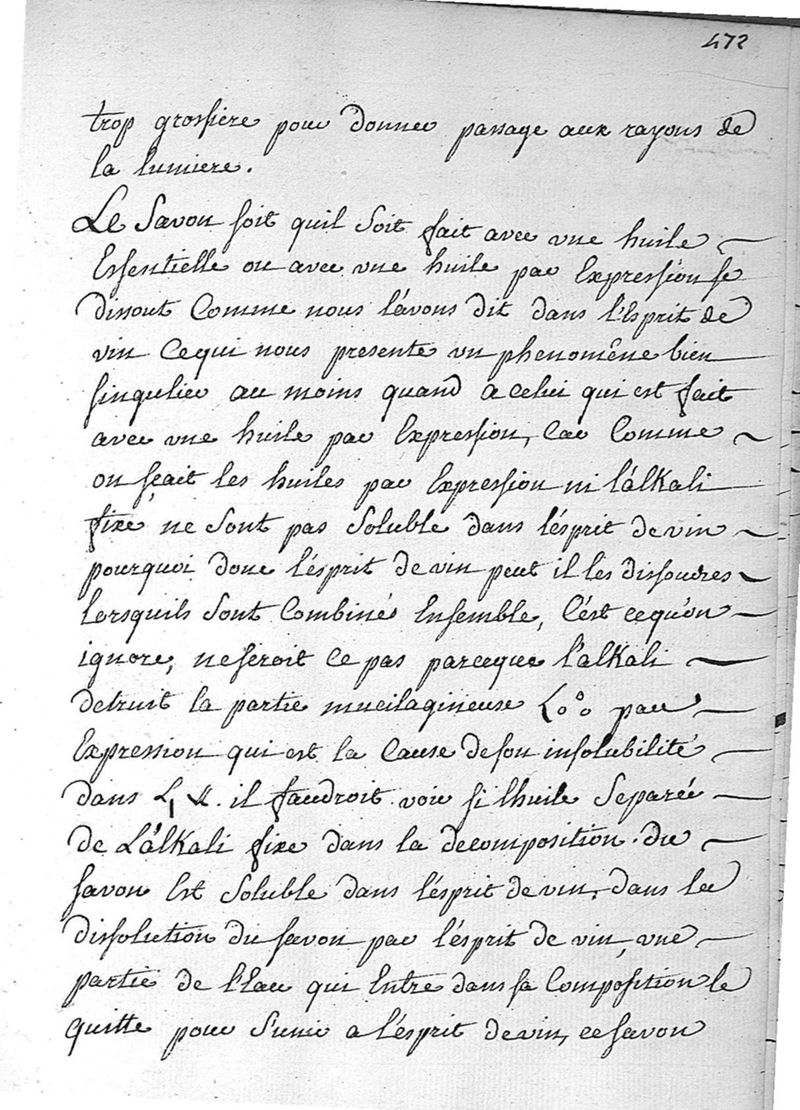 472
trop grossiere pour donner passage aux rayons de
la lumiere.
Le Savon soit quil soit fait avec une huile
Essentielle ou avec une huile par Expression se
dissout Comme nous l'avons dit dans l'Esprit de
vin Cequi nous presente un phenomêne bien
singulier au moins quand a celui qui est fait
avec une huile par Expression, Car Comme
on sçait les huiles par Expression ni l'alKali
fixe ne Sont pas Soluble dans l'ésprit de vin
pourquoi donc l'ésprit de vin peut il les dissoudres
Lorsquils Sont Combinés Ensemble, C'est cequ'on
ignore, ne seroit Ce pas parceque l'alKali
detruit la partie mucilagineuse par
Expression qui est la Cause de son insolubilité
dans il faudroit voir si lhuile Separée
de L'alKali fixe dans la decomposition du
savon Est Soluble dans l'ésprit de vin, dans la
dissolution du savon par l'ésprit de vin, une
partie de l'Eau qui Entre dans sa Composition le
quitte pour S'unir a l'ésprit de vin, ce savon